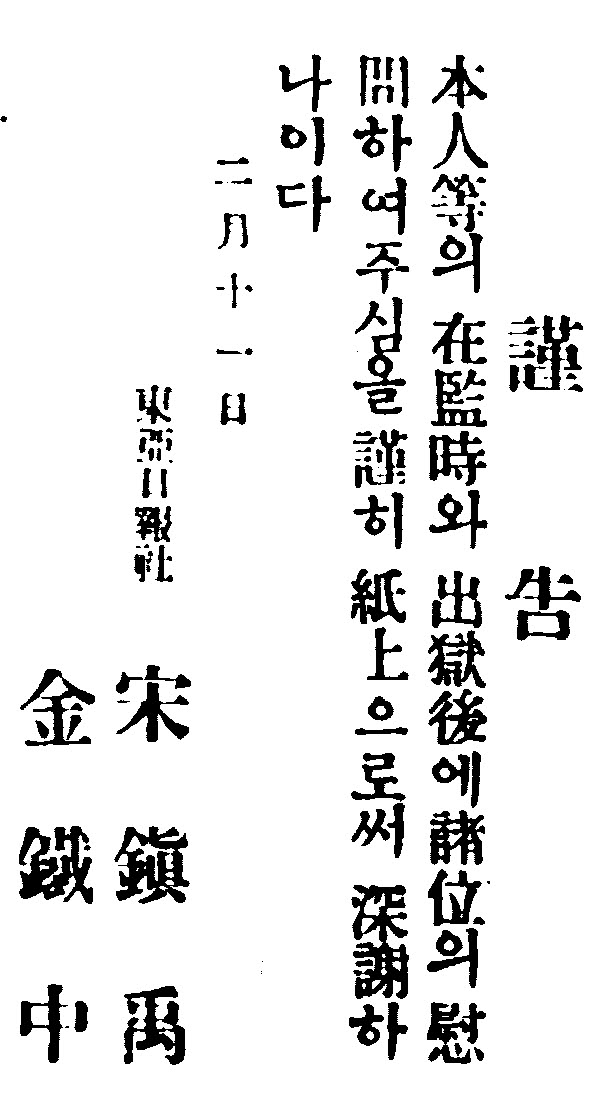 謹告
本人等의 在監時와 出獄後에 諸位의 慰
問하여 주심을 謹히 紙上으로써 深謝하
나이다
二月十一日
東亞日報社
宋鎭禹
金鐵中